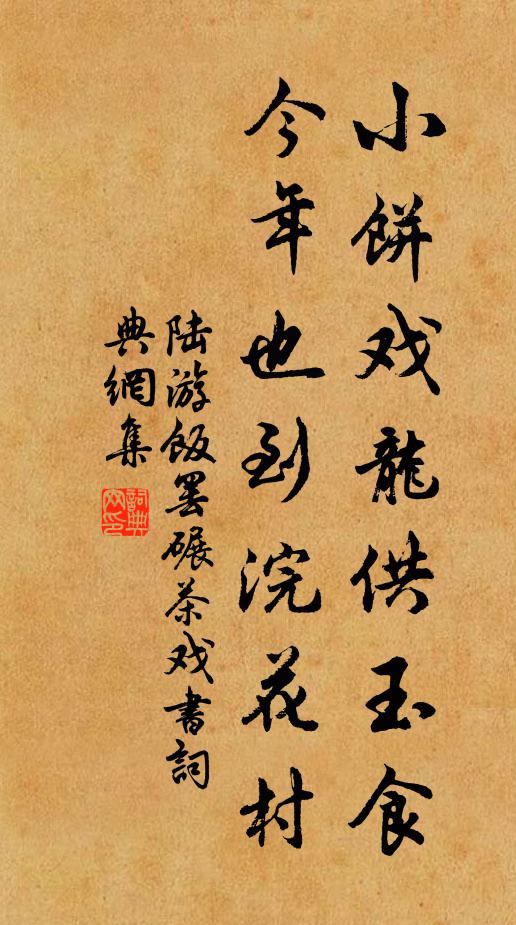 小餅戏龍供玉食
今年也到浣花村
陆游飯罢碾茶戏書詞
典網集
詞典網印